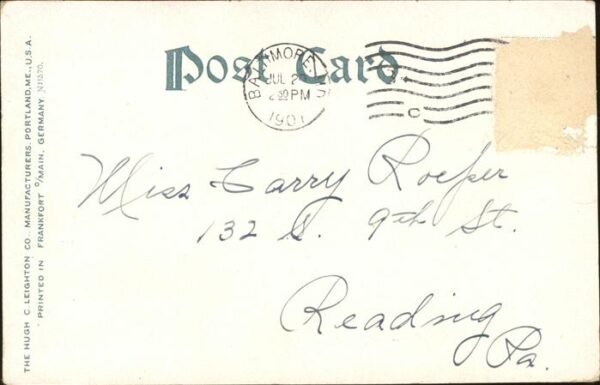 Post Card.
BALTIMORE, MD.
JUL 2
PM
1907
C
Miss Carry Roeper
132 S. 9th St.
Reading
Pa.
THE HUGH C LEIGHTON CO., MANUFACTURERS, PORTLAND, ME., U.S.A.
PRINTED IN FRANKFORT O/MAIN, GERMANY.